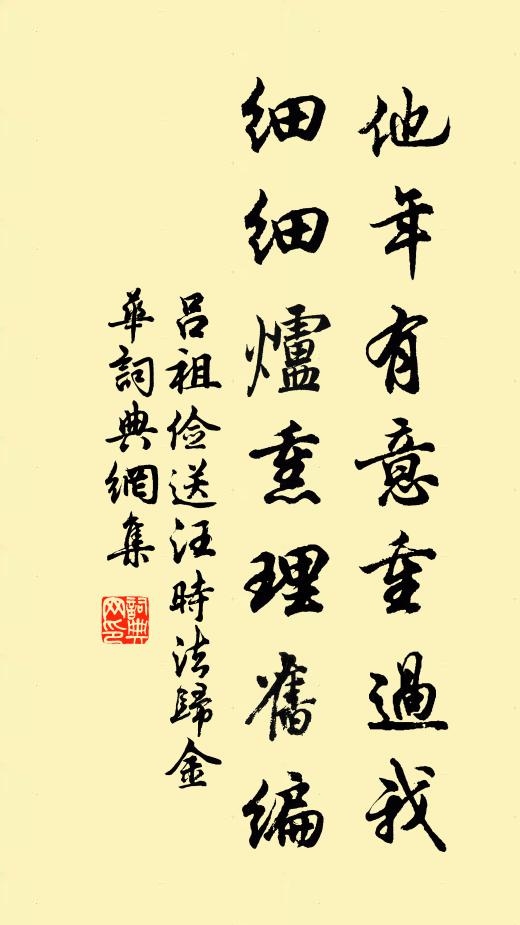 他年有意重過我
細細爐熏理舊編
吕祖俭送汪時法歸金
華詞典網集
詞典
网印